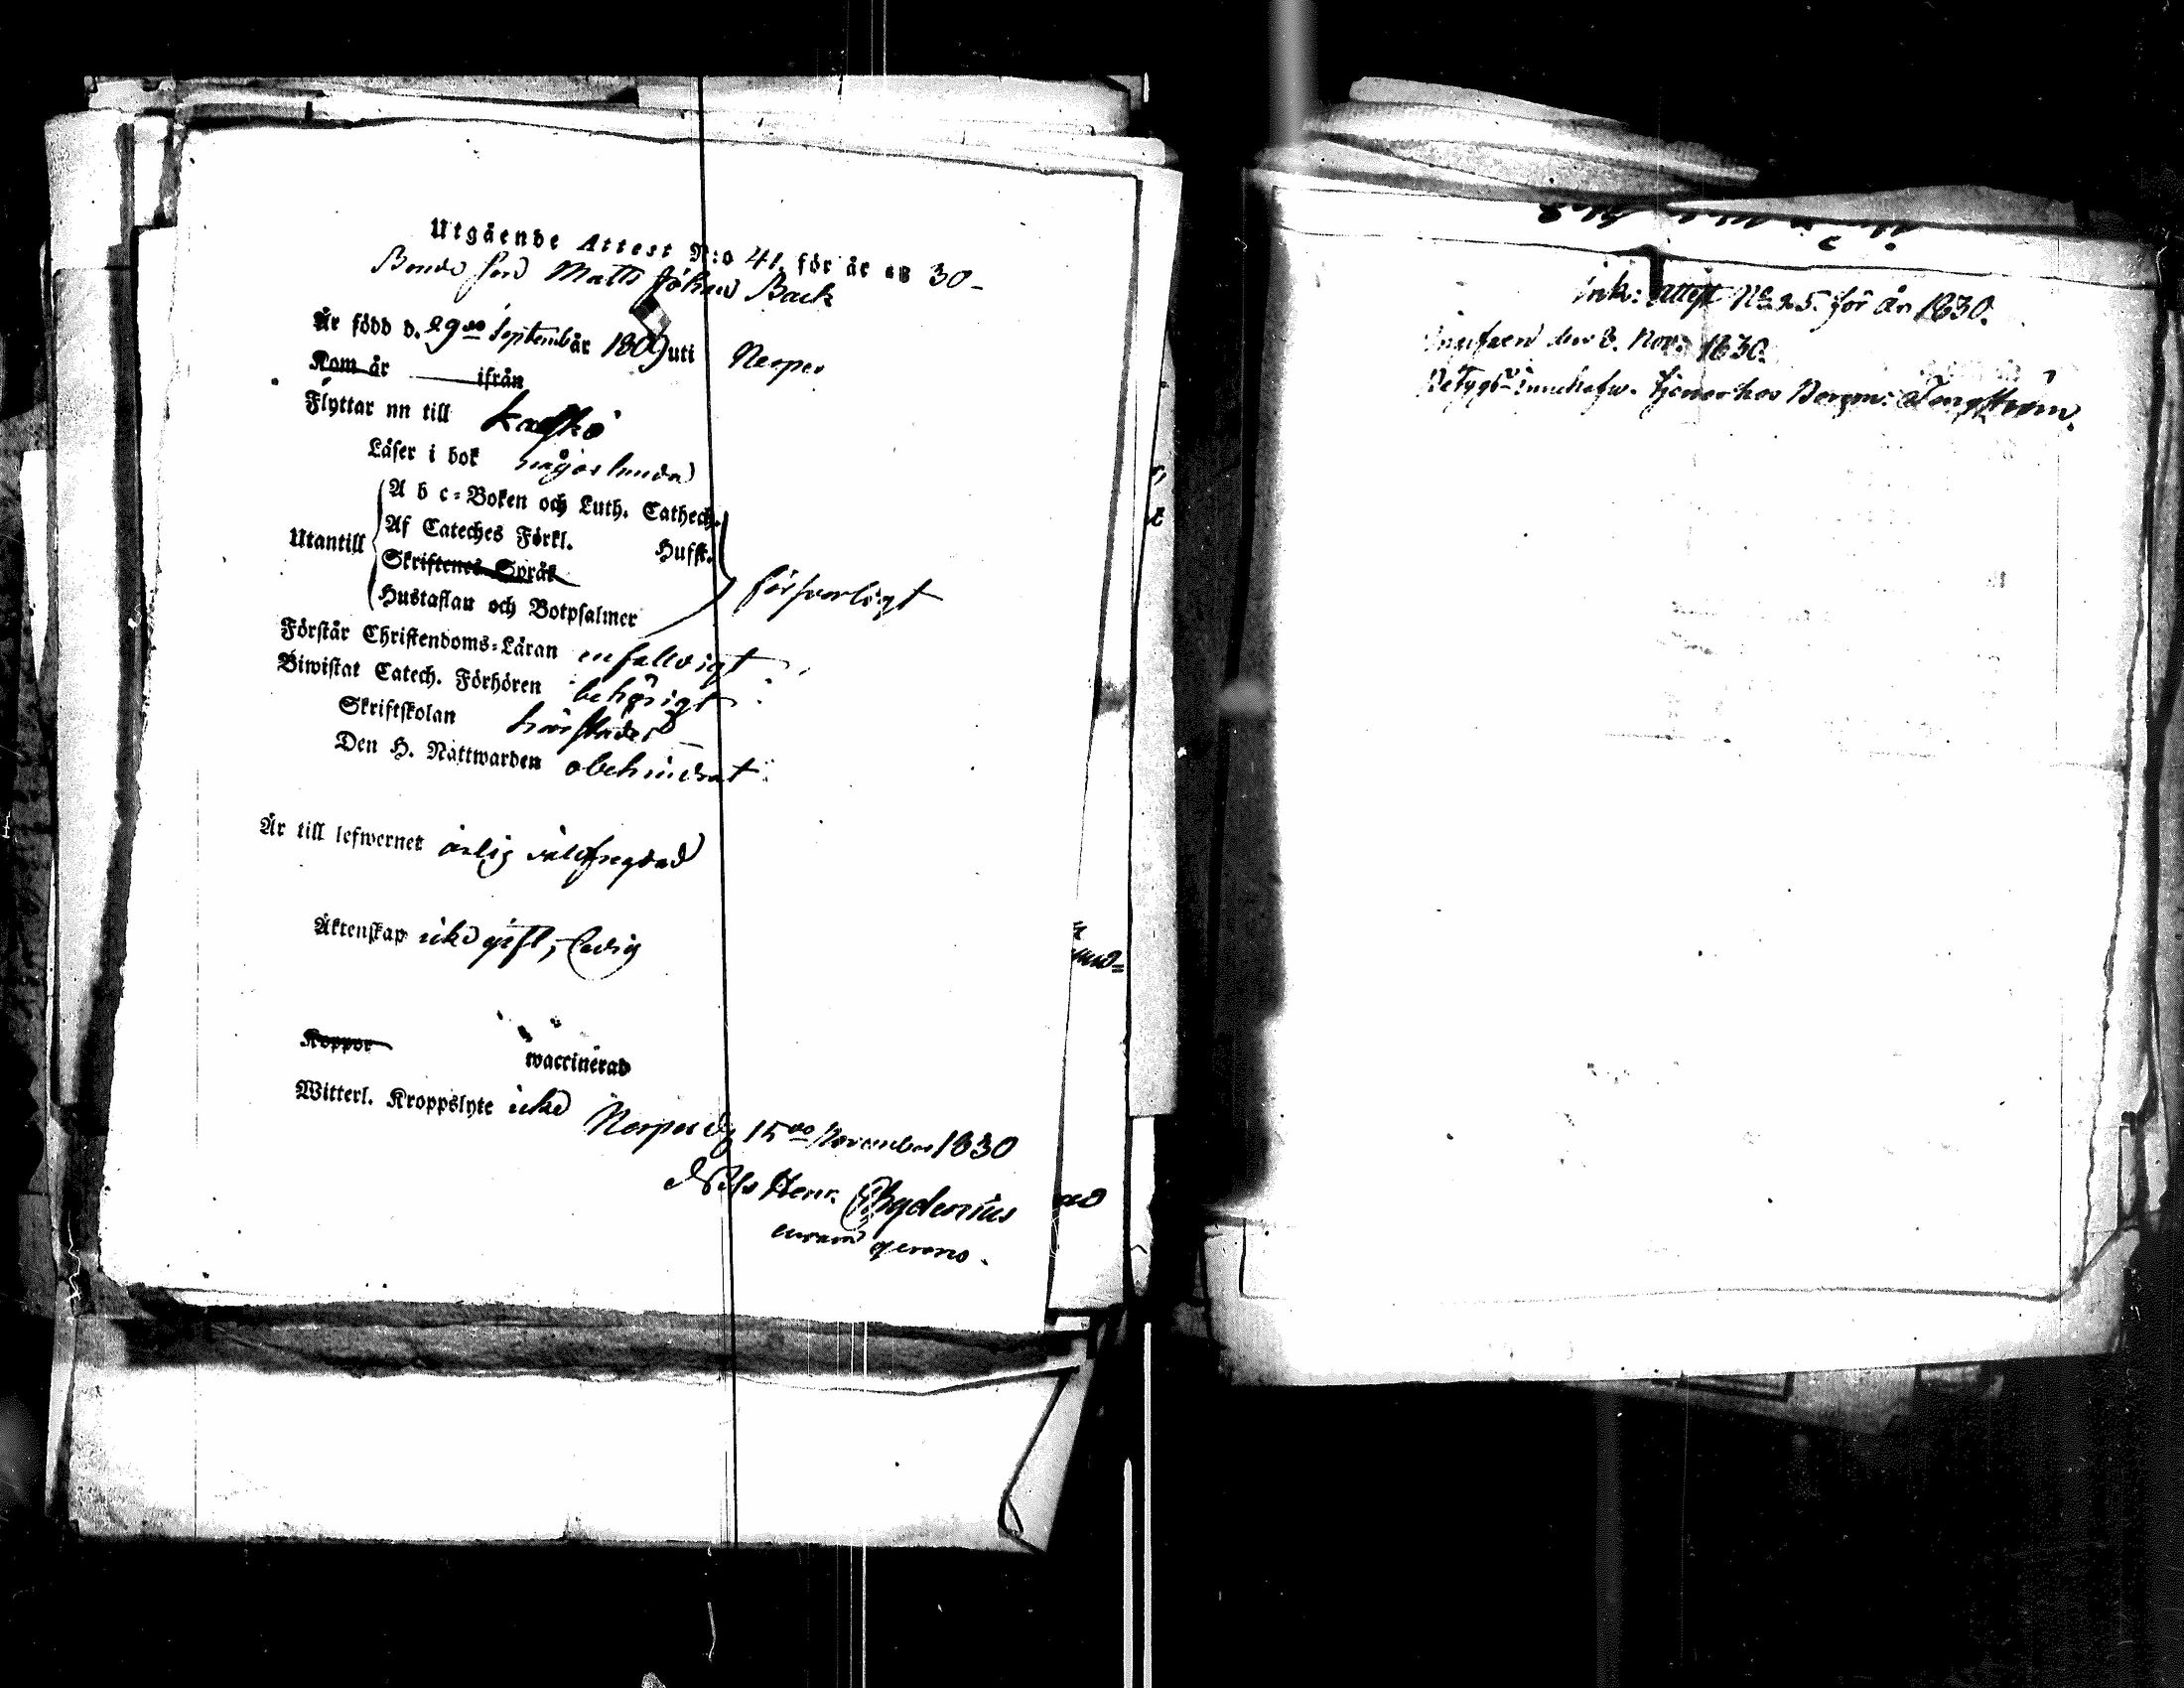 Utgående Attest N:o 41. för år 18 30-
Bonde son Matts Johan Back
Är född d. 29de Septemb år 1809 uti Nerpes
Kom år ifrån
Flyttar nu till Kaskö
Läser i bok någorlunda
A b c-Boken och Luth. Cathech.
Af Cateches Förkl. Hufst.
Utantill
Skriftenes Språk
Hustaflan och Botpsalmer
försvarligt
Förstår Christendoms-Läran enfaldigt
Biwistat Catech. Förhören behörigt
Skriftskolan härstädes
Den H. Nattwarden obehindrat
Är till lefwernet ärlig välfregdad
Äktenskap icke gift, ledig
Koppor waccinerad
Witterl. Kroppslyte icke
Nerpes d. 15de November 1830
Nils Henr. Chydenius
curam gerens.
Ink: attest No 25. för år 1830.
den 8. Nov. 1830.
Betygts innehafw. tjenar hos Borgm: Tengström.